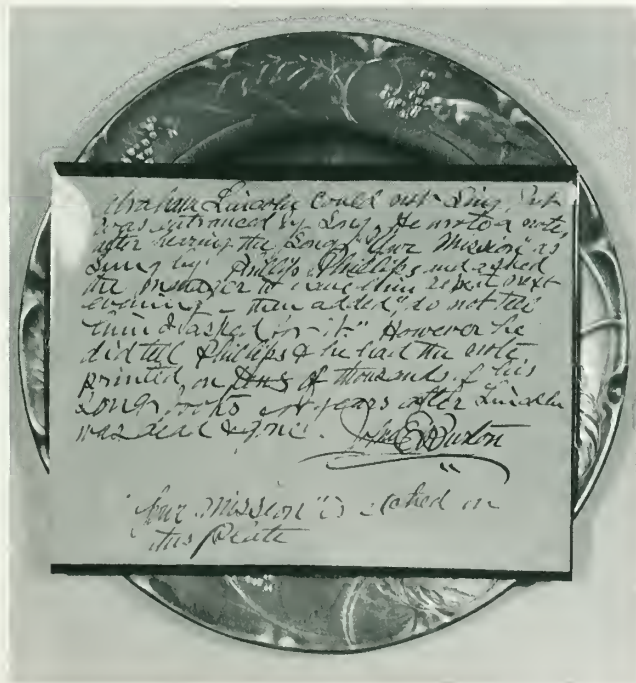 Abraham Lincoln could not sing, but
was entranced by song. He wrote a note,
after hearing the song "Your Mission" as
sung by Phillip Phillips and asked
the manager to have him repeat next
evening – then added, "do not tell
him I asked for it." However he
did tell Phillips & he had the note
printed on tens of thousands of his
song books for years after Lincoln
was dead & gone.
Burton
"Your Mission" is etched on
this plate